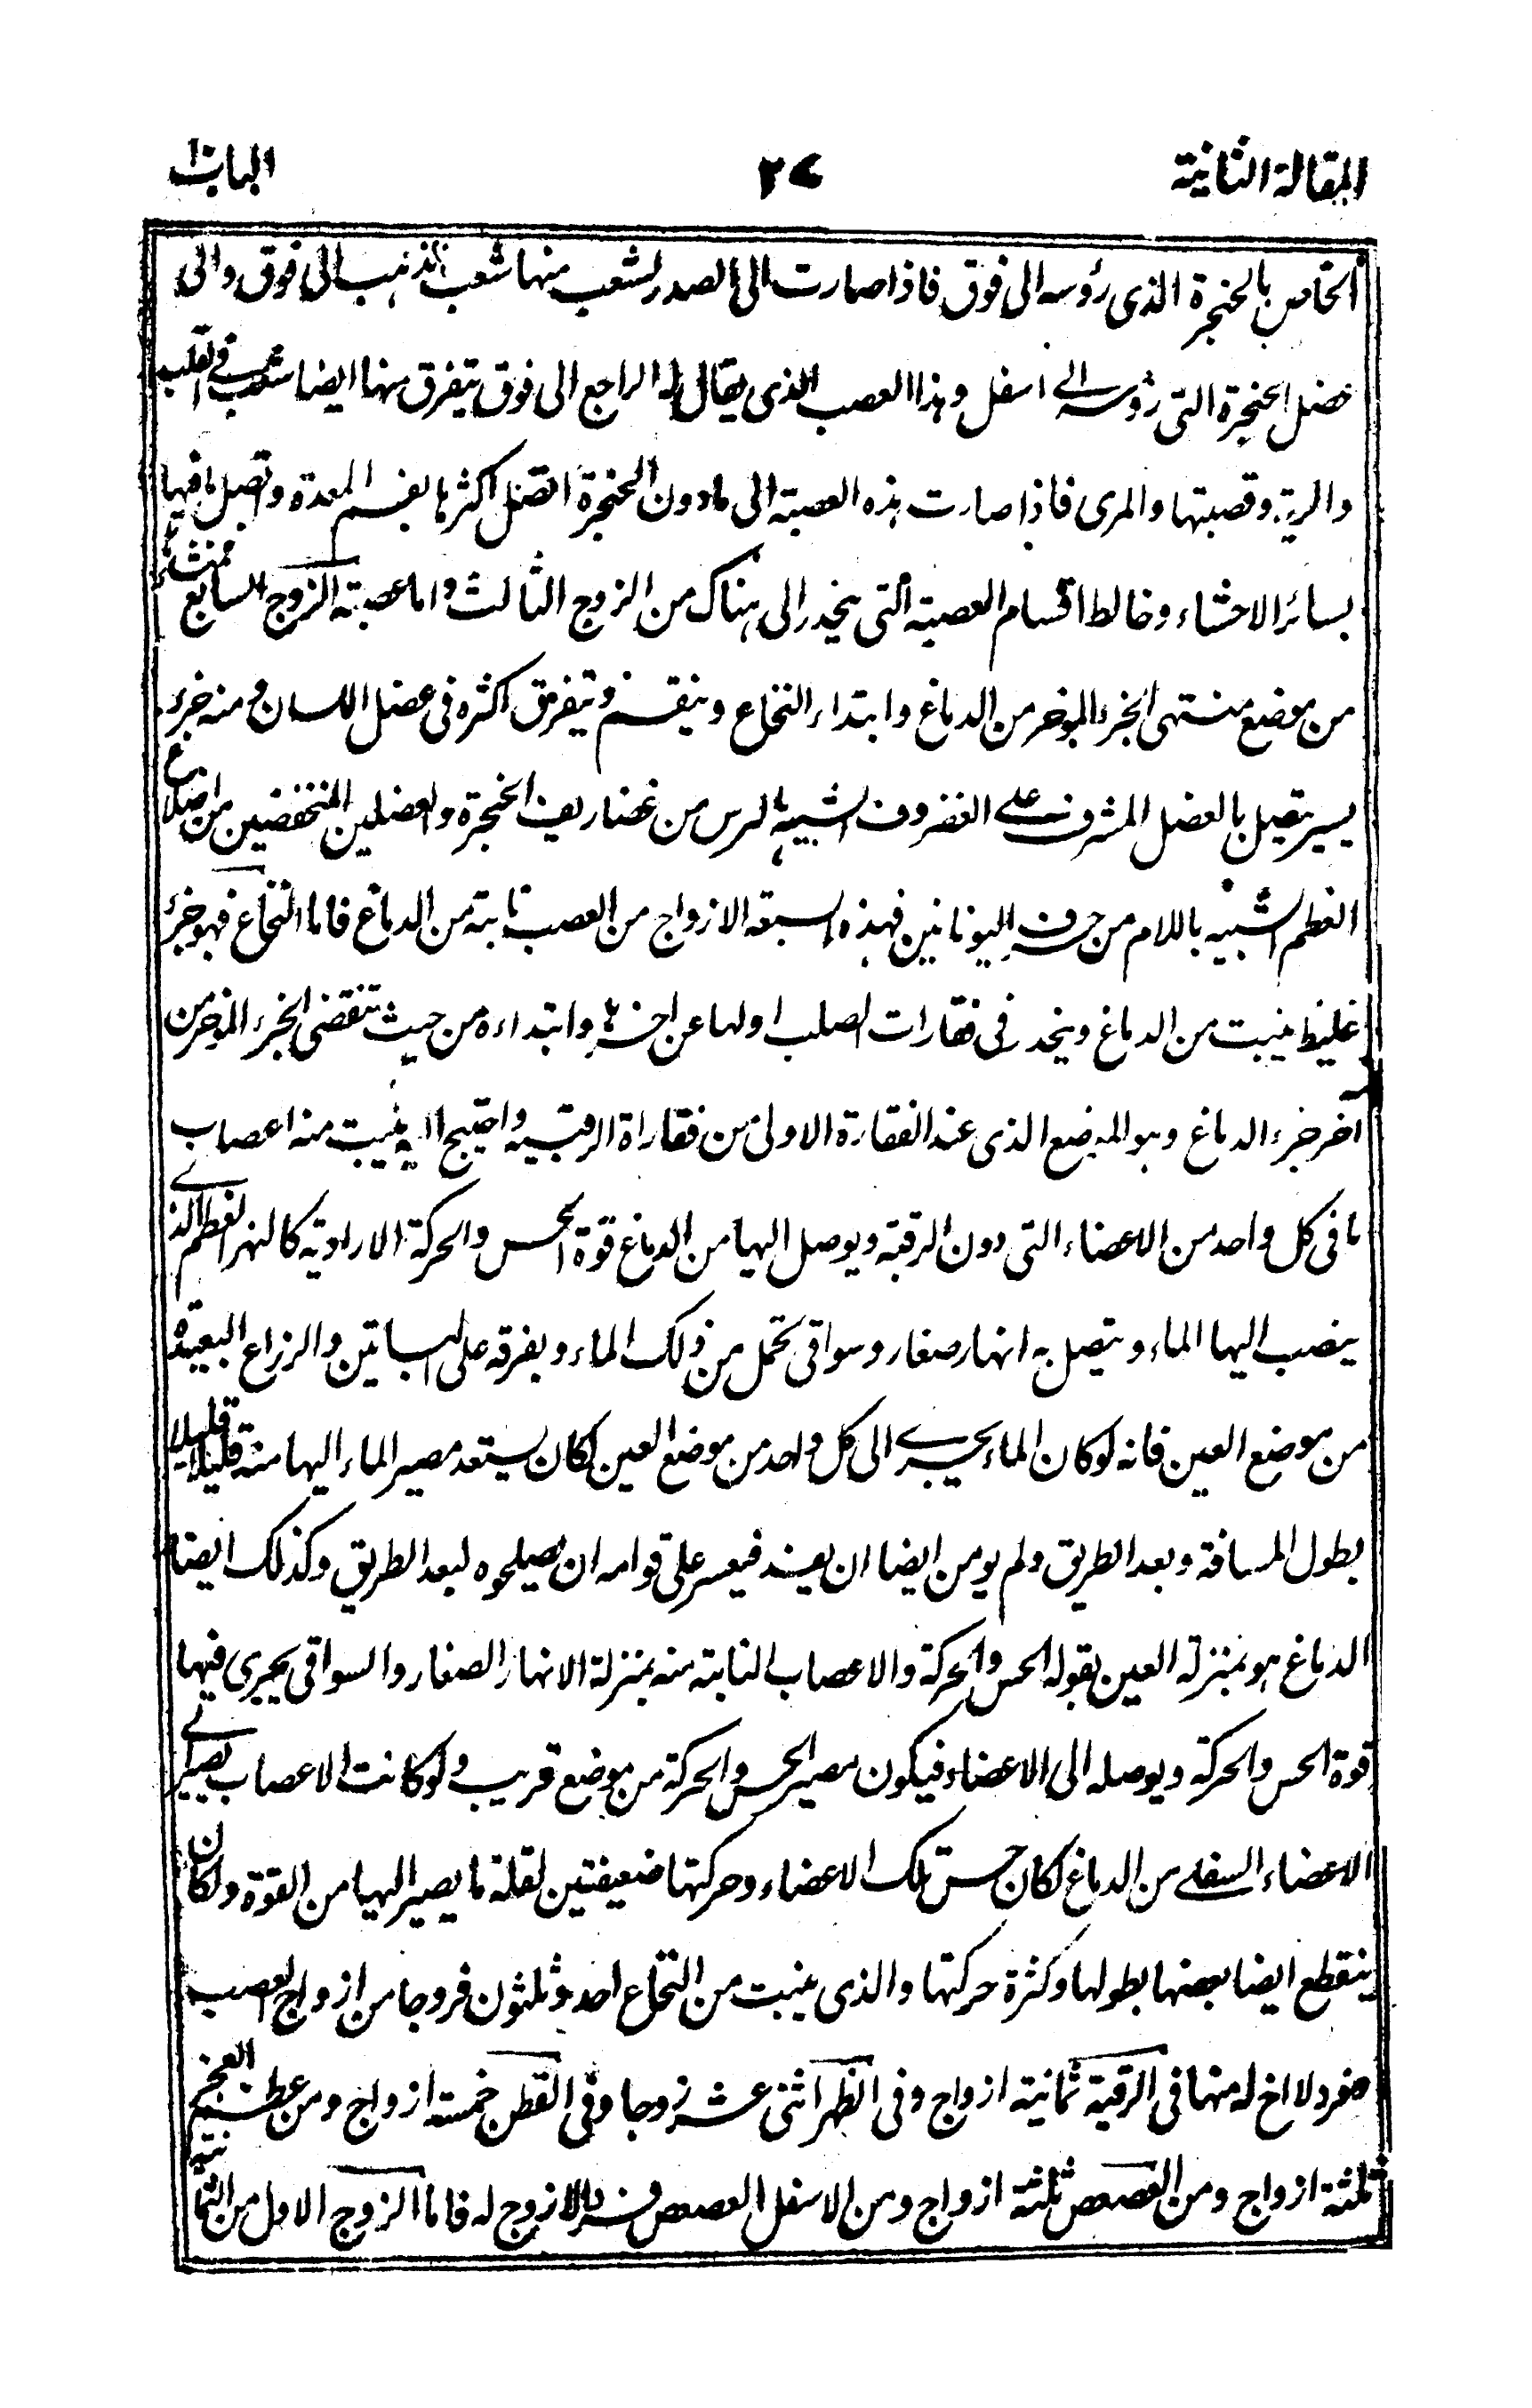 المقالة الثانية ٢٧ الباب ا
الخاص بالحنجرة الذى رؤسه الى فوق فاذا صارت الى الصدر تشعب منها شعب تذهب الى فوق والى
عضل الحنجرة التى رؤسه الى اسفل وهذا العصب الذى يقال له الراجع الى فوق يتفرق منها ايضا شعب فى القلب
والرية وقصبتها والمرى فاذا صارت هذه العصبة الى ما دون الحنجرة اتصل اكثرها بفم المعدة واتصل باقيها
بسائر الاحشاء وخالط اقسام العصبة التى ينحدر الى هناك من الزوج الثالث واما عصبة الزوج السابع فمنشأه
من موضع منتهى الجزء الموخر من الدماغ وابتداء النخاع وينقسم ويتفرق اكثره فى عضل اللسان ومنه جزء
يسير يتصل بالعضل المشرف على الغضروف الشبيه بالترس من غضاريف الحنجرة والعضلين المنخفضين من اضلاع
العظم الشبيه باللام من حرف اليونانين فهذه السبعة الازواج من العصب نابتة من الدماغ فاما النخاع فهو جزء
غليظ ينبت من الدماغ وينحدر فى فقارات الصلب اولها عن اخرها وابتداءه من حيث تنقضى الجزء الموخر من
آخر جزء الدماغ وهو الموضع الذى عند الفقارة الاولى من فقاراة الرقبة واحتيج اليه ينبت منه اعصاب
ما فى كل واحد من الاعضاء التى دون الرقبة ويوصل اليها من الدماغ قوة الحس والحركة الارادية كالنهر العظم الذى
ينصب اليها الماء ويتصل به انهار صغار وسواقى تحمل من ذلك الماء ويفرقه على البساتين والزراع البعيدة
من موضع العين فانه لو كان الماء يجرى الى كل واحد من موضع العين لكان يستعد مصير الماء اليها منه قليلا قليلا
بطول المسافة وبعد الطريق ولم يومن ايضا ان يفسد فيعسر على قوامه ان يصلحوه لبعد الطريق وكذلك ايضا
الدماغ هو بمنزلة العين بقوله الحس والحركة والاعصاب النابتة منه بمنزلة الانهار الصغار والسواقى يجرى فيها
قوة الحس والحركة ويوصله الى الاعضاء فيكون مصير الحس والحركة من موضع قريب ولو كانت الاعصاب يصير الى
الاعضاء السفلى من الدماغ لكان حس تلك الاعضاء وحركتها ضعيفتين لقلة ما يصير اليها من القوة ولكان
ينقطع ايضا بعضها بطولها وكثرة حركتها والذى ينبت من النخاع احد وثلثون فروجا من ازواج العصب
مفرد لا اخ له منها فى الرقبة ثمانية ازواج وفى الظهر اثنى عشر زوجا وفى القطن خمسة ازواج ومن عظم العجز
ثلثة ازواج ومن العصعص ثلثة ازواج ومن الاسفل العصعص فرد لا زوج له فاما الزوج الاول من الثمانية